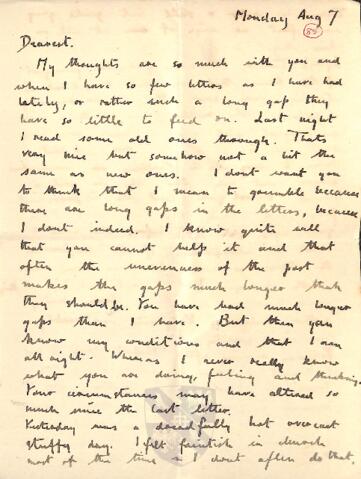 Monday Aug 7
Dearest.
My thoughts are so much with you and
when I have so few letters as I have had
lately, or rather such a long gap they
have so little to feed on. Last night
I read some old ones through. Thats
very nice but somehow not a bit the
same as new ones. I dont want you
to think that I mean to grumble because
there are long gaps in the letters, because
I dont indeed. I know quite well
that you cannot help it and that
often the unevenness of the post
makes the gaps much longer than
they should be. You have had much longer
gaps than I have. But then you
know my conditions and that I am
all right. Whereas I never really know
what you are doing, feeling and thinking.
Your circumstances may have altered so
much since the last letter.
Yesterday was a dreadfully hot overcast
stuffy day. I felt faintish in church
most of the time – I dont often do that.